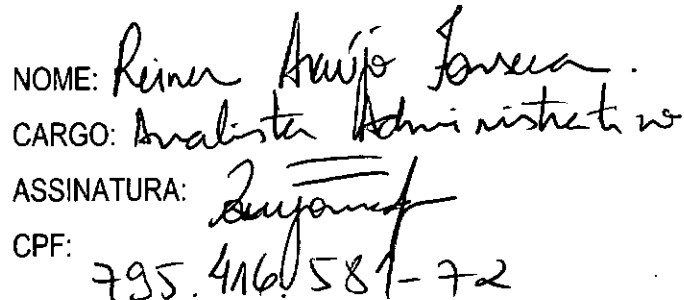 NOME: Reiner Araújo Fonseca.
CARGO: Analista Administrativo
ASSINATURA:
CPF: 795.416.581-72